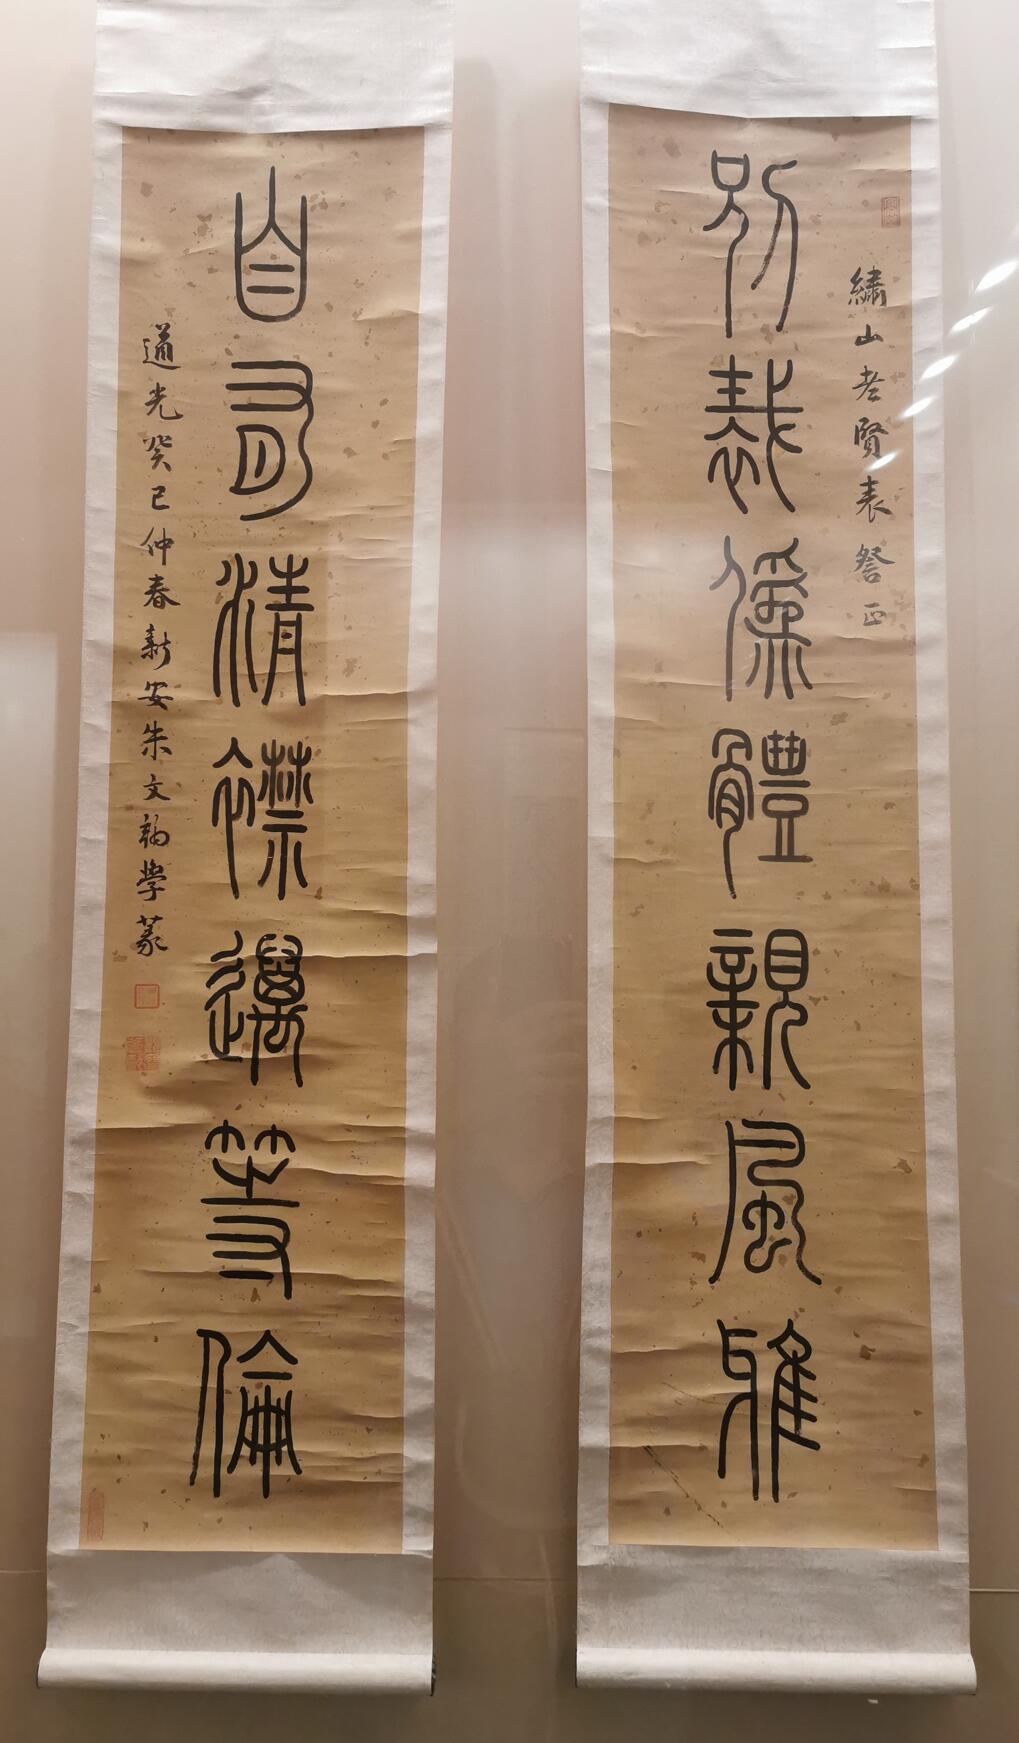 繡山老賢表詧正
別裁僞體親風雅
自有清襟邁等倫
道光癸巳仲春新安朱文翰學篆